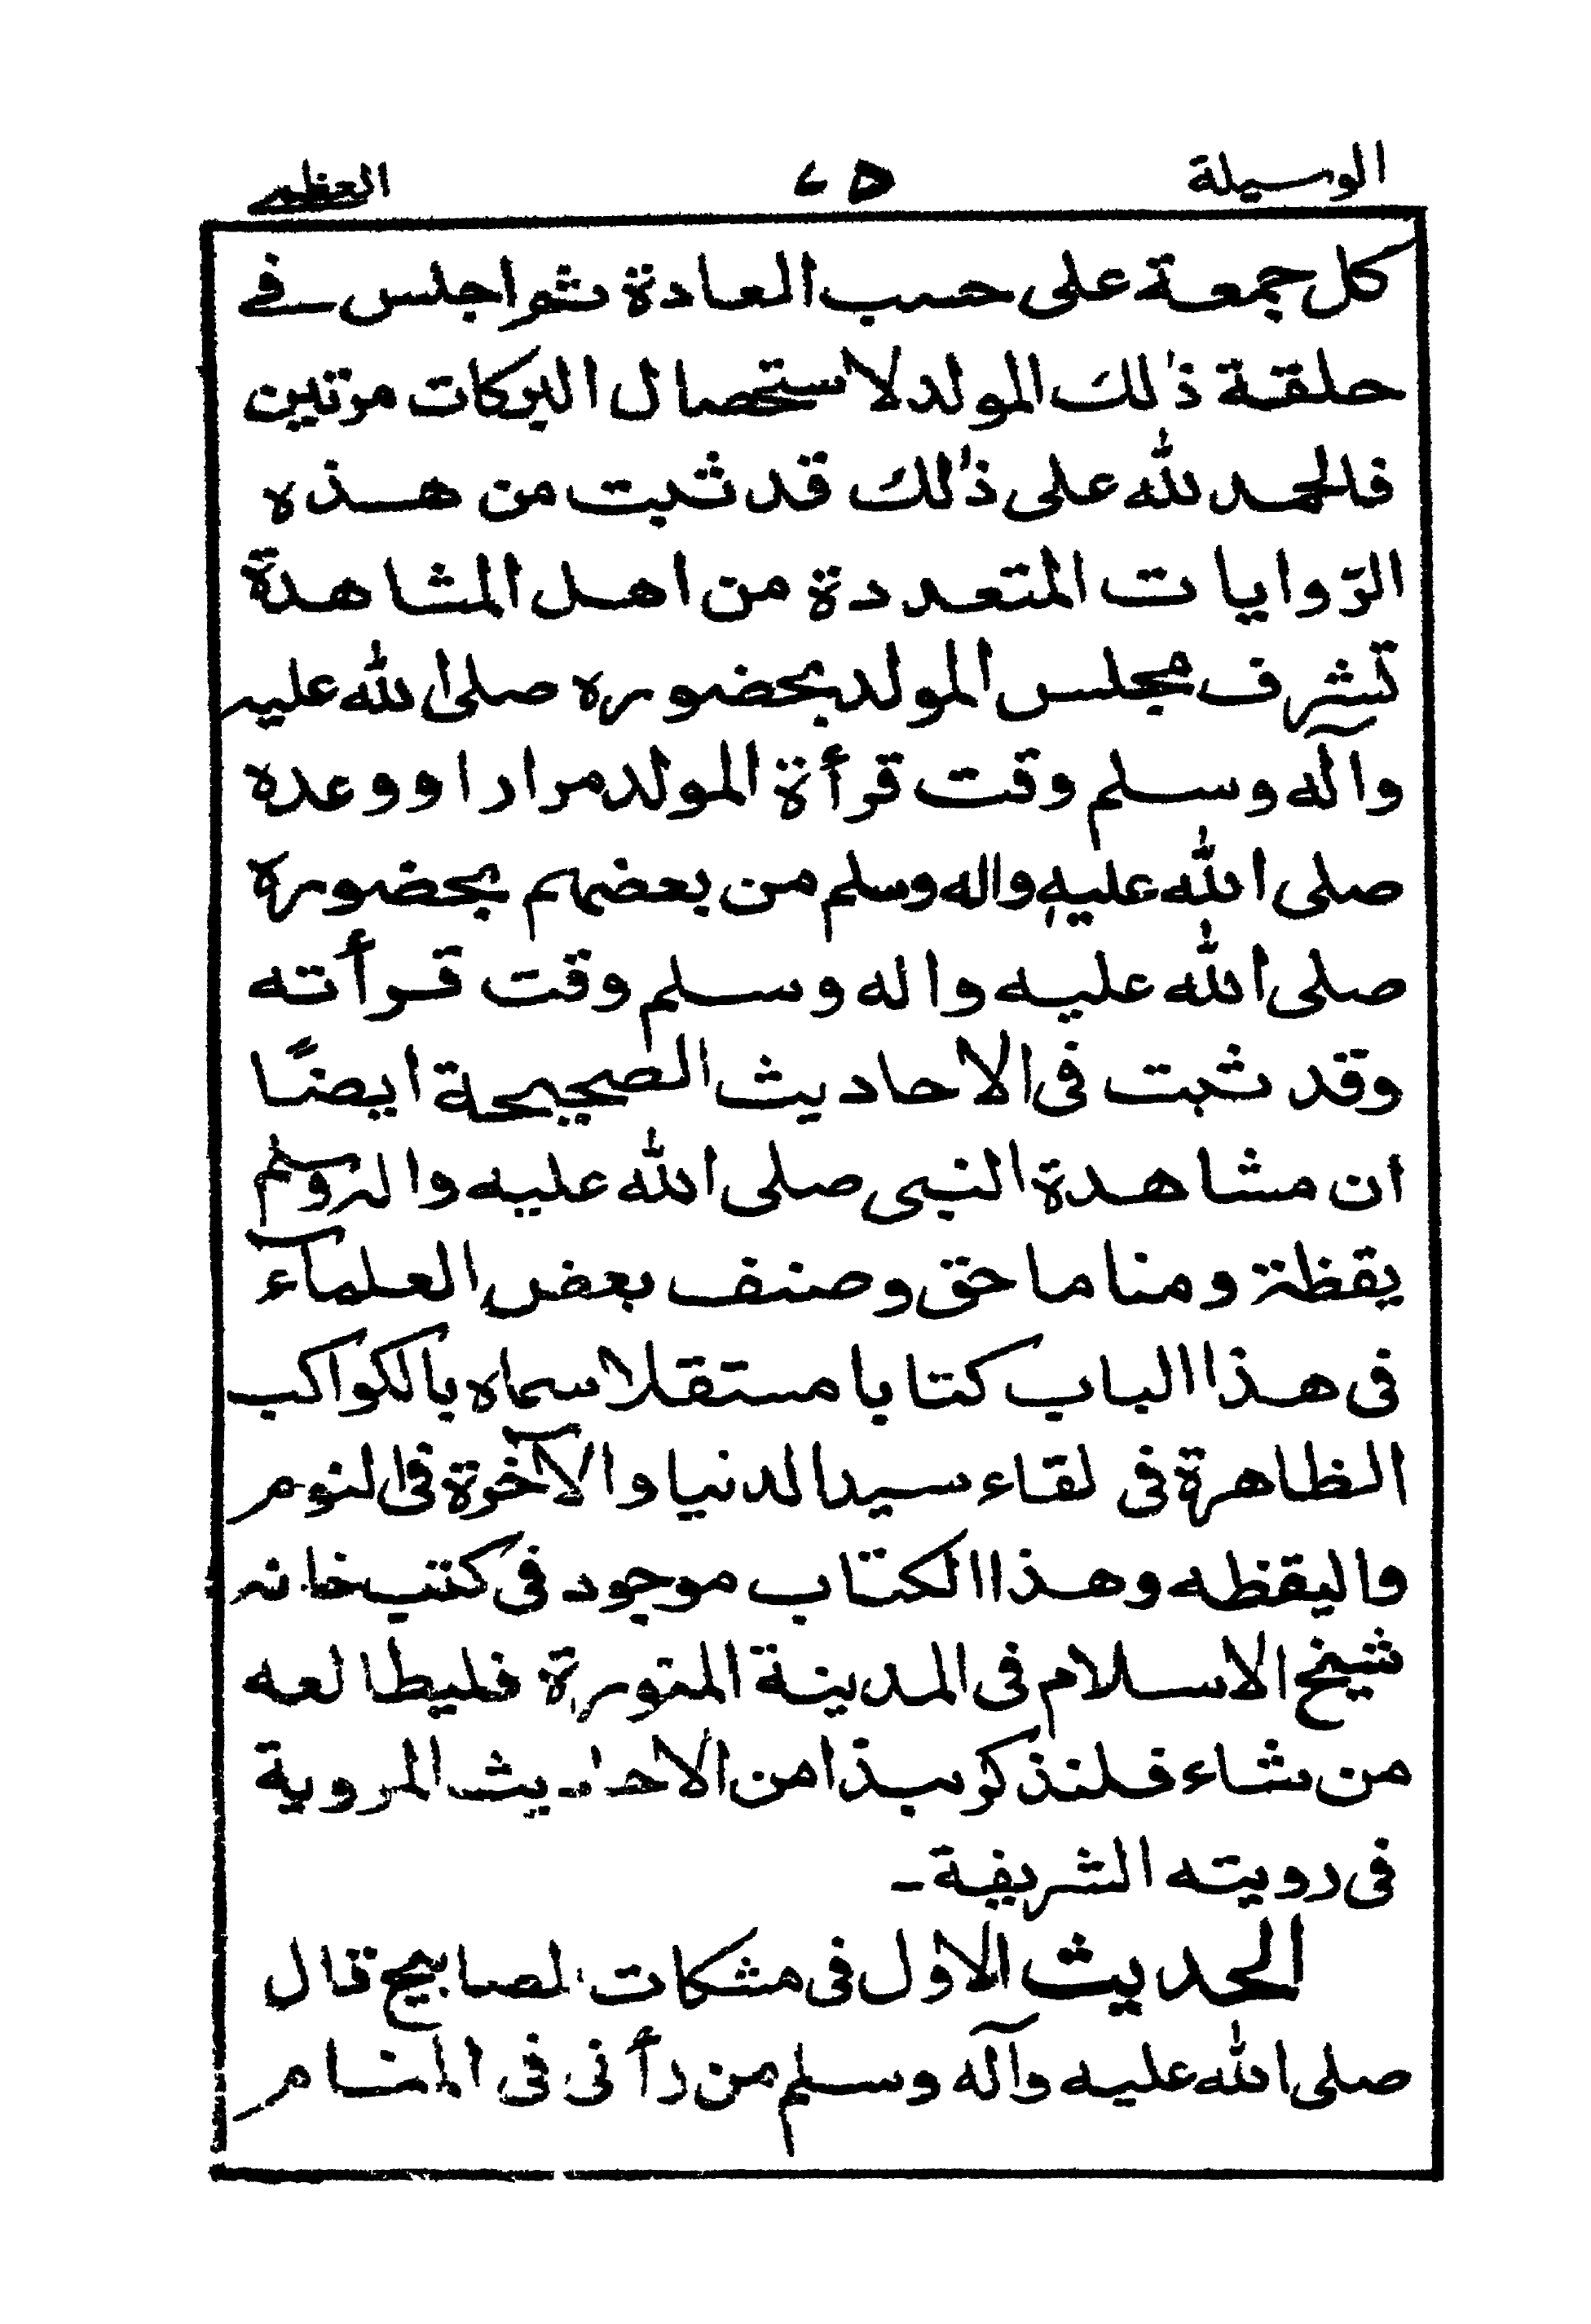 الوسيلة ٥٧ العظمى
كل جمعة على حسب العادة ثم اجلس في
حلقة ذٰلك المولد لاستحصال البركات مرتين
فالحمد لله على ذٰلك قد ثبت من هذه
الرّوايات المتعددة من اهل المشاهدة
تشرف مجلس المولد بحضوره صلى الله عليه
وآله وسلم وقت قرأة المولد مرارا ووعده
صلى الله عليه واله وسلم من بعضهم بحضوره
صلى الله عليه واله وسلم وقت قرأته
وقد ثبت فى الاحاديث الصحيحة ايضًا
ان مشاهدة النبى صلى الله عليه واله وسلم
يقظة ومناما حق وصنف بعض العلماء
فى هذا الباب كتابا مستقلا سماه بالكواكب
الظاهرة فى لقاء سيد الدنيا والآخرة فى النوم
واليقظه وهذا الكتاب موجود فى كتب خانه
شيخ الاسلام فى المدينة المنورة فليطالعه
من شاء فلنذكر سبذا من الاحاديث المروية
فى رويته الشريفة ـ
الحديث الاول فى مشكات المصابيح قال
صلى الله عليه وآله وسلم من رأنى فى المنام